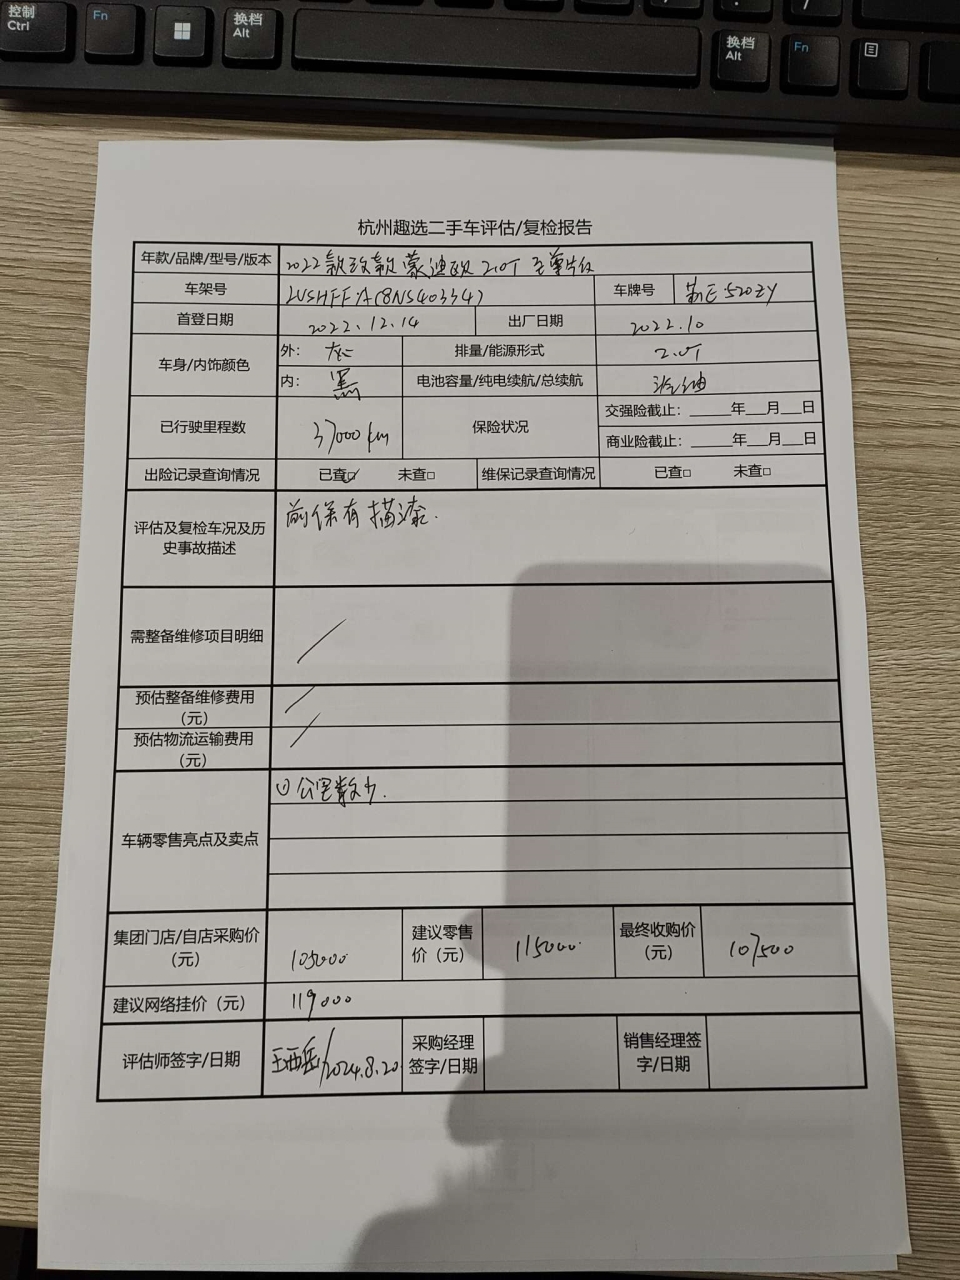 控制
Ctrl
Fn
换档
Alt
换档
Alt
Fn
杭州趣选二手车评估/复检报告
年款/品牌/型号/版本 2022款改款蒙迪欧 2.0T 至尊版
车架号 LVSHFFAC8NS403347 车牌号 E520ZY
首登日期 2022.12.14 出厂日期 2022.10
车身/内饰颜色 外: 灰 排量/能源形式 2.0T
内: 黑 电池容量/纯电续航/总续航 汽油
已行驶里程数 37000km 保险状况 交强险截止: 年 月 日
商业险截止: 年 月 日
出险记录查询情况 已查☑ 未查□ 维保记录查询情况 已查□ 未查□
评估及复检车况及历史事故描述 前保有描漆.
需整备维修项目明细 /
预估整备维修费用(元) /
预估物流运输费用(元) /
车辆零售亮点及卖点 ① 公里数少.
集团门店/自店采购价(元) 105000 建议零售价(元) 115000 最终收购价(元) 107500
建议网络挂价(元) 119000
评估师签字/日期 王西岳/2024.8.20 采购经理签字/日期 销售经理签字/日期